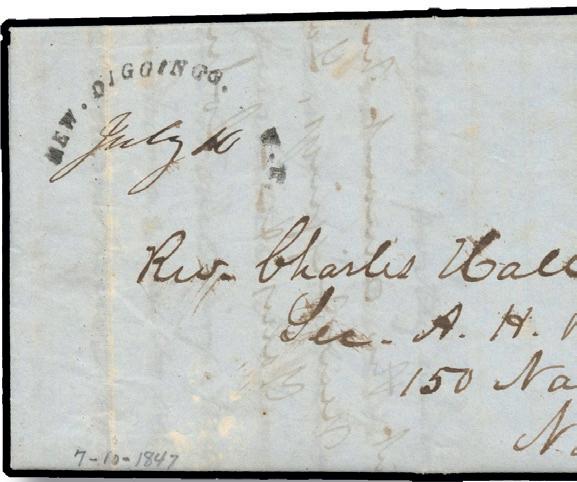 NEW. DIGGINGS. W.T
July 10
Rev. Charles Hall
Sec. A. H.
150 Na
N.
7-10-1847